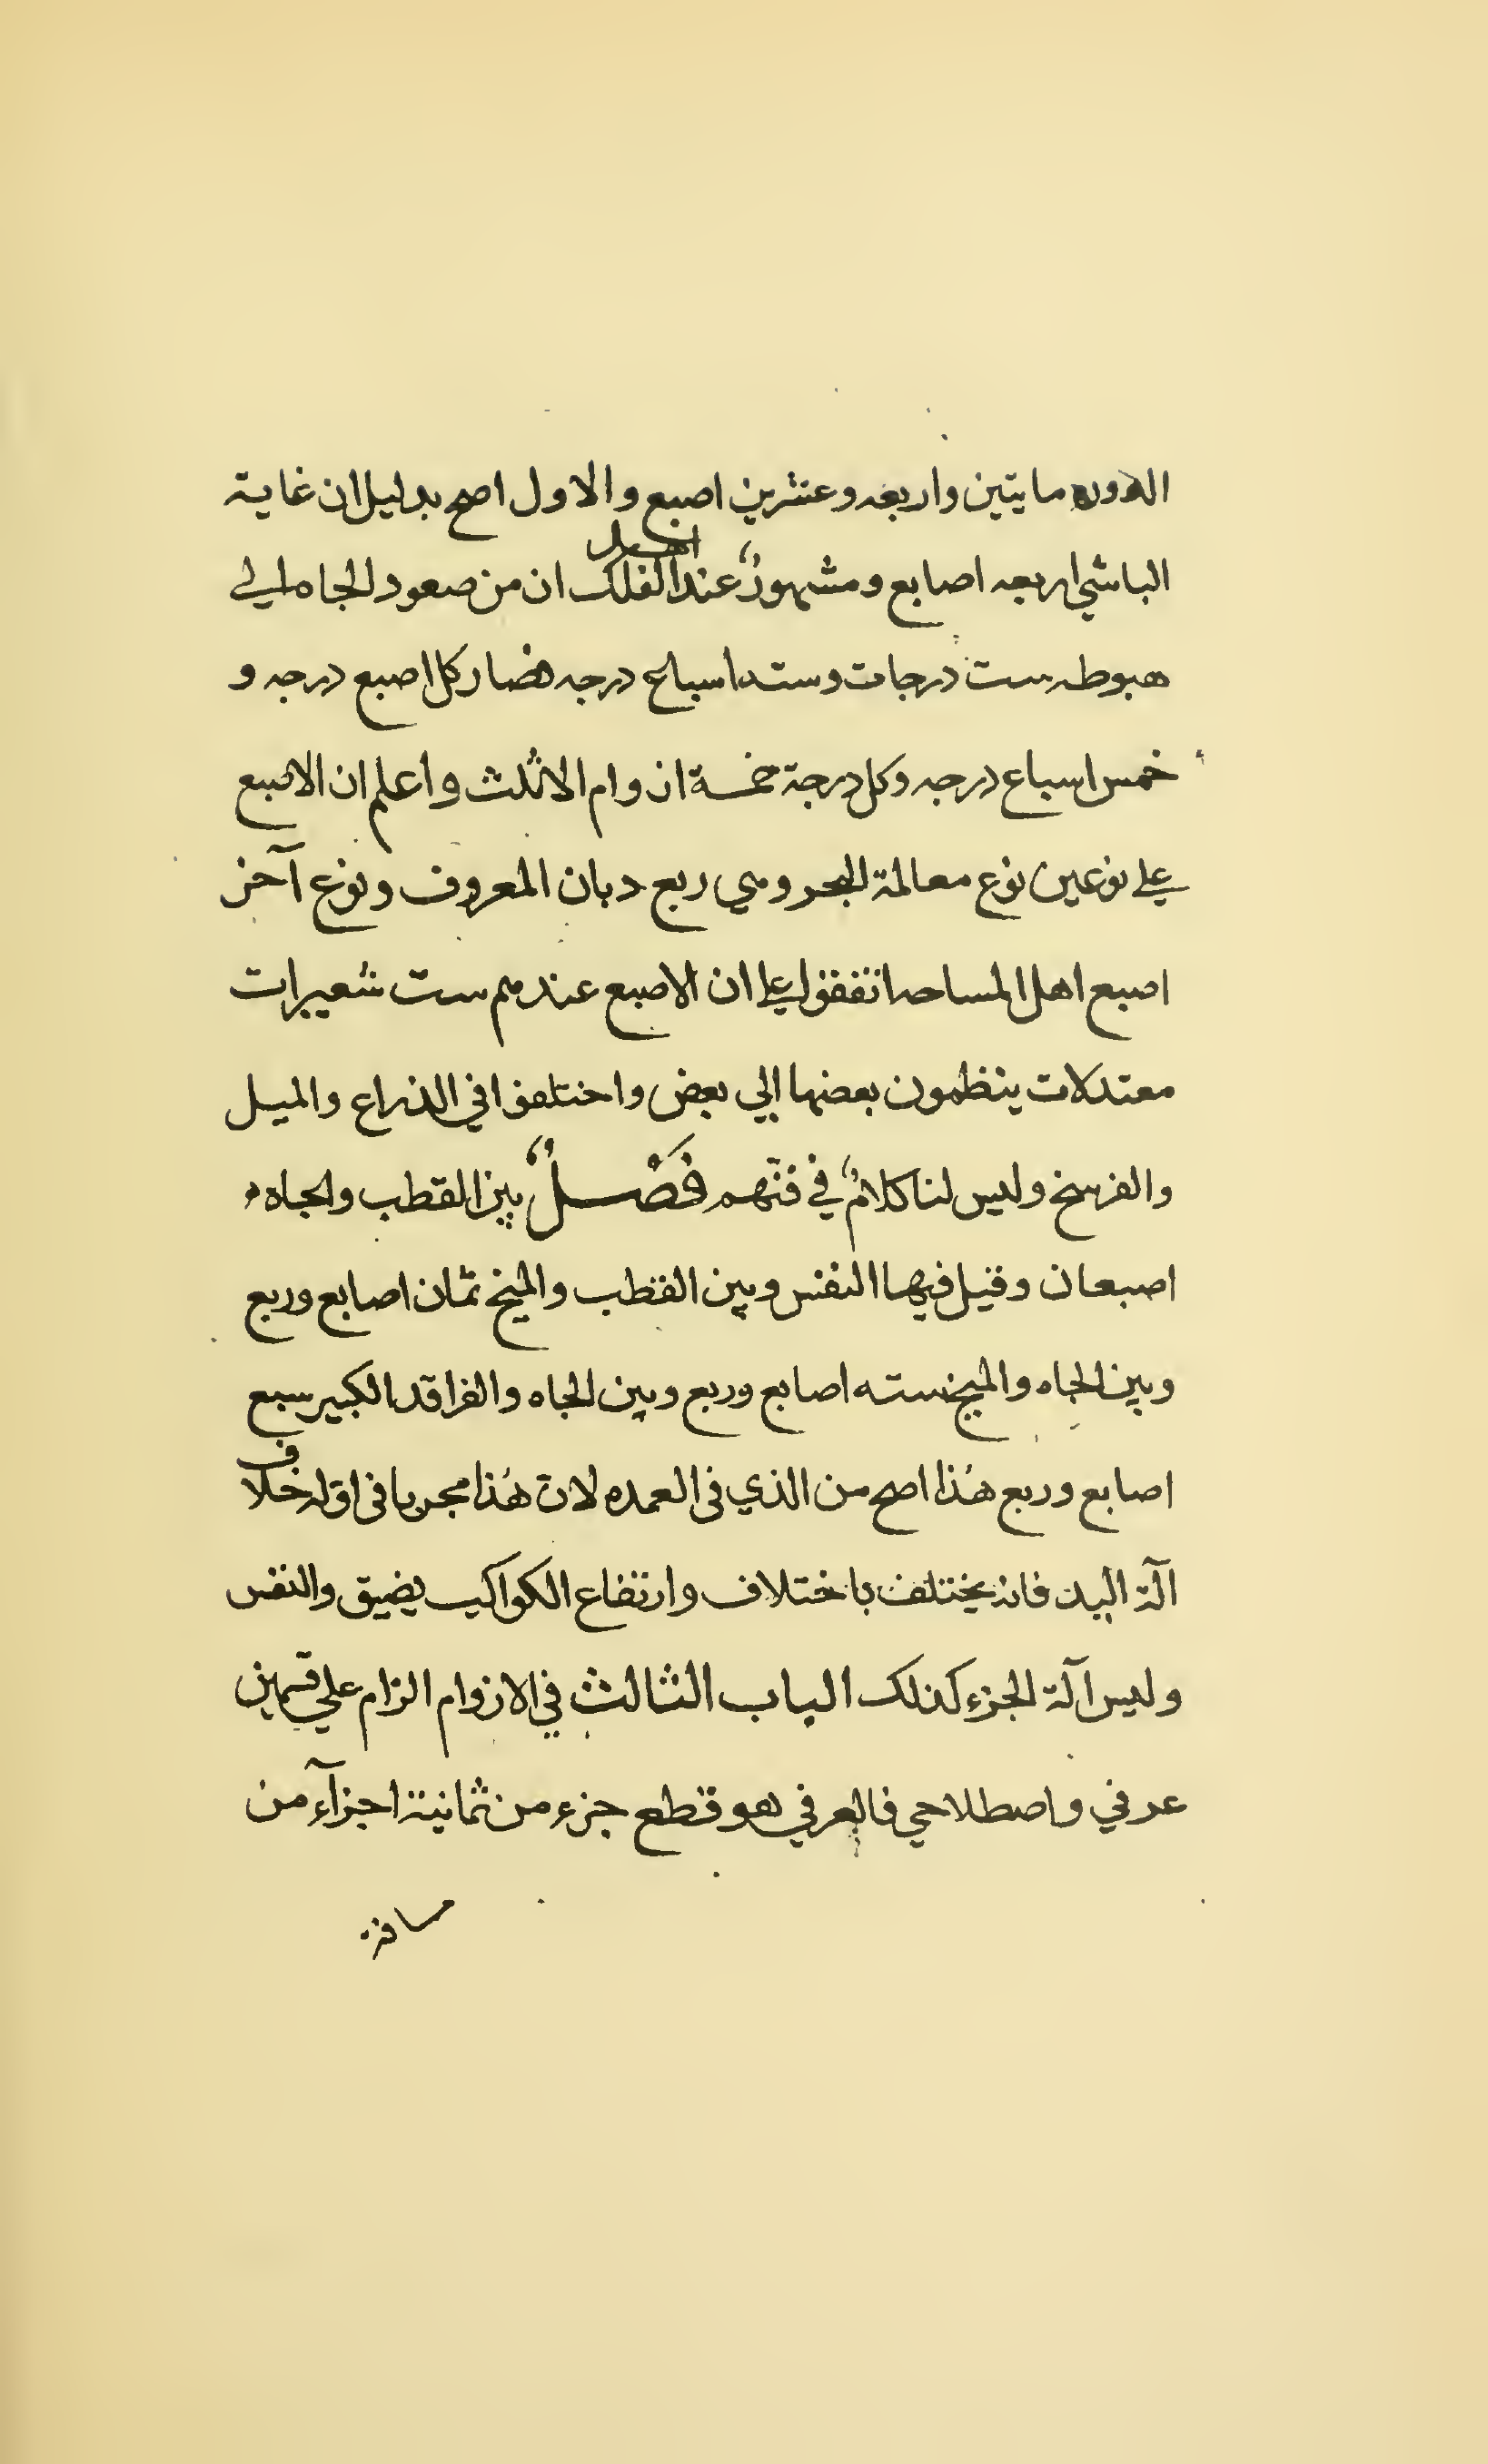 الدوره مايتين واربعه وعشرين اصبع والاول اصح بدليل ان غاية
الباشي اربعه اصابع ومشهورٌ عند اهل الفلك ان من صعود الجاه الي
هبوطه ست درجات وستة اسباع درجه فصار كل اصبع درجه و
خمس اسباع درجه وكل درجة خمسة ازوام الا ثلث واعلم ان الاصبع
علي نوعين نوع معالمة البحر وهي ربع دبان المعروف ونوع آخر
اصبع اهل المساحه اتفقوا علي ان الاصبع عندهم ست شعيرات
معتدلات ينظمون بعضها الي بعض واختلفوا في الذراع والميل
والفرسخ وليس لنا كلامٌ في فنّهم فَصْلٌ بين القطب والجاه
اصبعان وقيل فيها النفس وبين القطب والميخ ثمان اصابع وربع
وبين الجاه والميخ سته اصابع وربع وبين الجاه والفراقد الكبير سبع
اصابع وربع هذا اصح من الذي في العمده لان هذا مجربا في اوله خلاف
آلة اليد فانه يختلف باختلاف وارتفاع الكواكب يضيق والنفس
وليس آلة الجزء كذلك الباب الثالث في الازوام الزام علي قسمين
عرفي واصطلاحي فالعرفي هو قطع جزء من ثمانية اجزآء من
مسافة